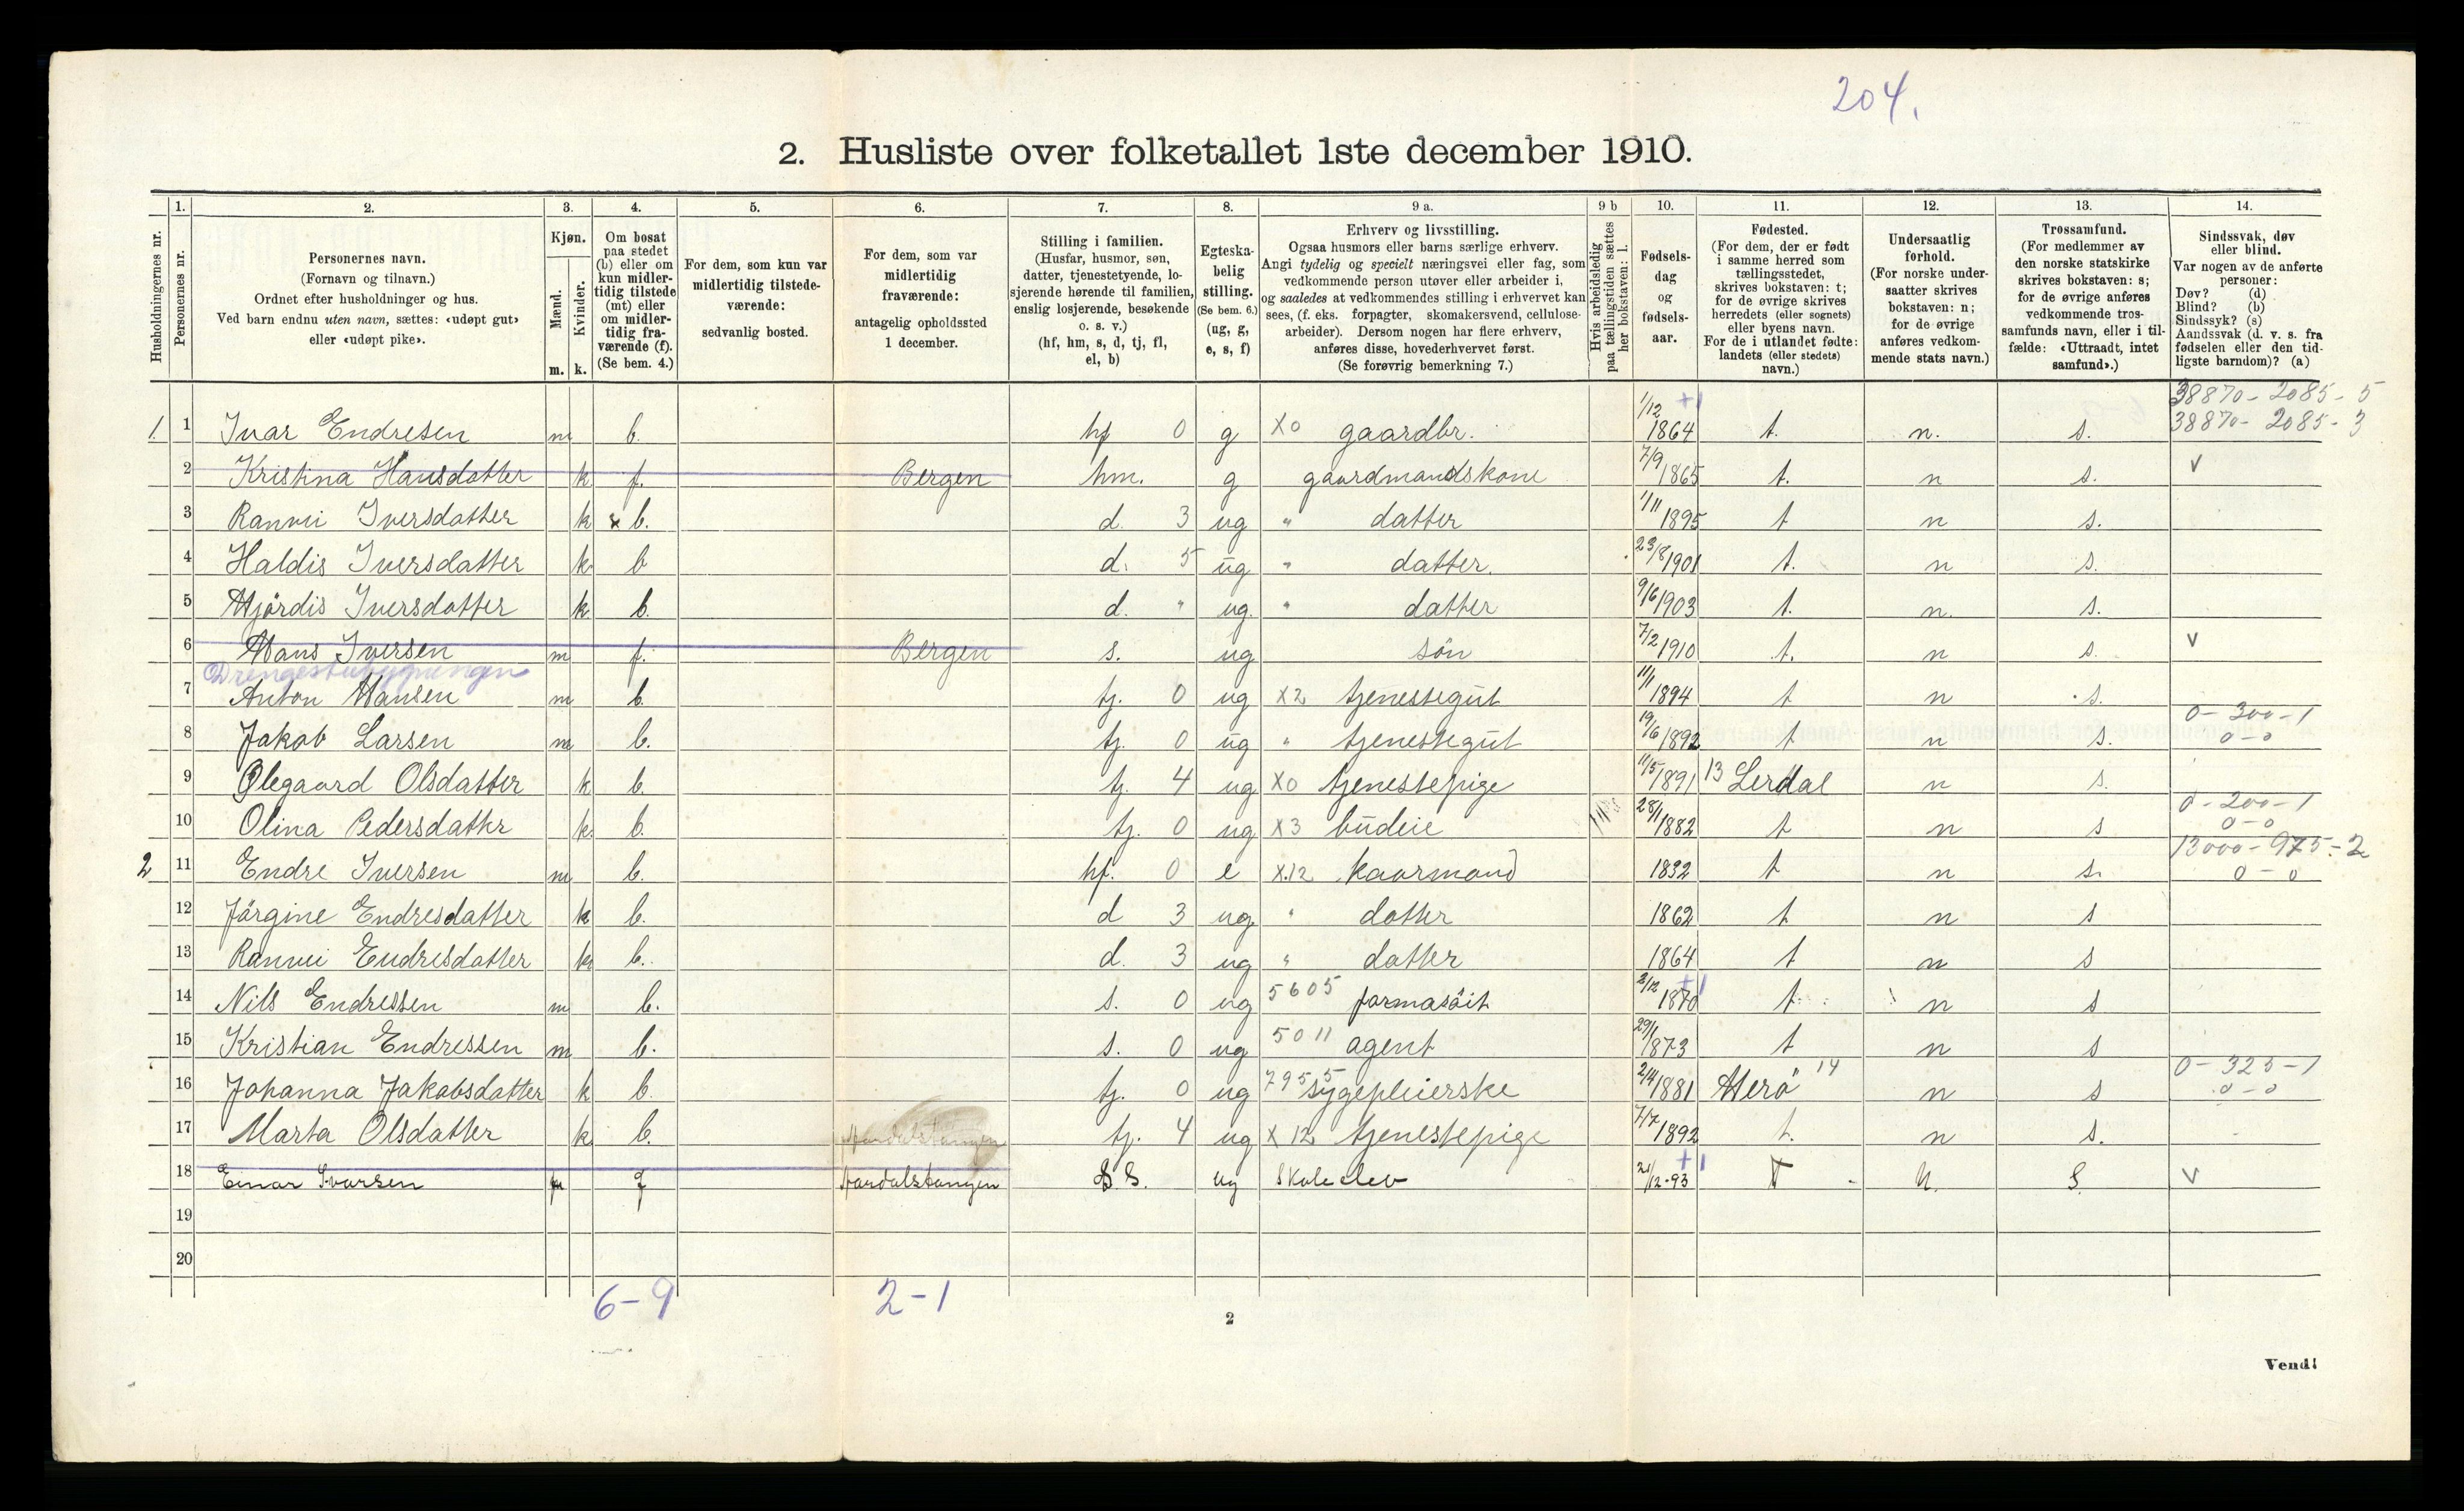 204.
2. Husliste over folketallet 1ste december 1910.
Husholdningernes nr.
1. Personernes nr.
2. Personernes navn.
(Fornavn og tilnavn.)
Ordnet efter husholdninger og hus.
Ved barn endnu uten navn, sættes: «udøpt gut»
eller «udøpt pike».
3. Kjøn.
Mænd. Kvinder.
m. k.
4. Om bosat
paa stedet
(b) eller om
kun midler-
tidig tilstede
(mt) eller
om midler-
tidig fra-
værende (f).
(Se bem. 4.)
5. For dem, som kun var
midlertidig tilstede-
værende:
sedvanlig bosted.
6. For dem, som var
midlertidig
fraværende:
antagelig opholdssted
1 december.
7. Stilling i familien.
(Husfar, husmor, søn,
datter, tjenestetyende, lo-
sjerende hørende til familien,
enslig losjerende, besøkende
o. s. v.)
(hf, hm, s, d, tj, fl,
el, b)
8. Egteska-
belig
stilling.
(Se bem. 6.)
(ug, g,
e, s, f)
9 a. Erhverv og livsstilling.
Ogsaa husmors eller barns særlige erhverv.
Angi tydelig og specielt næringsvei eller fag, som
vedkommende person utøver eller arbeider i,
og saaledes at vedkommendes stilling i erhvervet kan
sees, (f. eks. forpagter, skomakersvend, cellulose-
arbeider). Dersom nogen har flere erhverv,
anføres disse, hovederhvervet først.
(Se forøvrig bemerkning 7.)
9 b Hvis arbeidsledig
paa tællingstiden sættes
her bokstaven: l.
10. Fødsels-
dag
og
fødsels-
aar.
11. Fødested.
(For dem, der er født
i samme herred som
tællingsstedet,
skrives bokstaven: t;
for de øvrige skrives
herredets (eller sognets)
eller byens navn.
For de i utlandet fødte:
landets (eller stedets)
navn.)
12. Undersaatlig
forhold.
(For norske under-
saatter skrives
bokstaven: n;
for de øvrige
anføres vedkom-
mende stats navn.)
13. Trossamfund.
(For medlemmer av
den norske statskirke
skrives bokstaven: s;
for de øvrige anføres
vedkommende tros-
samfunds navn, eller i til-
fælde: «Uttraadt, intet
samfund».)
14. Sindssvak, døv
eller blind.
Var nogen av de anførte
personer:
Døv? (d)
Blind? (b)
Sindssyk? (s)
Aandssvak (d. v. s. fra
fødselen eller den tid-
ligste barndom)? (a)
38870 - 2085 - 5
1. 1 Ivar Endresen m b. hf 0 g X0 gaardbr. 1/12 +1 1864 t. n. s. 38870 - 2085 - 3
2 Kristina Hansdatter k f. Bergen hm. g gaardmandskone 7/9 1865 t. n s. v
3 Ranvei Iversdatter k x b. d. 3 ug " datter 1/11 1895 t n s.
4 Haldis Iversdatter k b d. 5 ug " datter. 23/8 1901 t. n s.
5 Hjördis Iversdatter k b. d. " ug. " datter 9/6 1903 t. n. s.
6 Hans Iversen m f. Bergen s. ug sön 7/2 1910 t. n s. v
Drengestubygningen
7 Anton Hansen m b. tj. 0 ug X2 tjenestegut 11/1 1894 t n s.
8 Jakob Larsen m b. tj. 0 ug " tjenestegut 19/6 1892 t n s. 0 - 300 - 1 0 - 0
9 Olegaard Olsdatter k b. tj. 4 ug X0 tjenestepige 11/5 1891 13 Lerdal n s.
10 Olina Pedersdatter k. b. tj. 0 ug X3 budeie 28/1 1882 t n s 0 - 200 - 1 0 - 0
2 11 Endre Iversen m b. hf. 0 e X.12 kaarmand 1832 t n s. 13000 - 975 - 2 0 - 0
12 Jörgine Endresdatter k b. d 3 ug " datter 1862 t n s
13 Ranvei Endresdatter k b. d. 3 ug " datter 1864 t n s
14 Nils Endressen m b. s. 0 ug 5605 farmasöit 2/12 +1 1870 t n s
15 Kristian Endressen m b. s. 0 ug 5011 agent 29/1 1873 t n s
16 Johanna Jakobsdatter k b. tj. 0 ug 7955 sygepleierske 2/4 1881 Herö 14 n s 0 - 325 - 1 0 - 0
17 Marta Olsdatter k b. Aardalstangen tj. 4 ug X 12 tjenestepige 7/7 1892 t. n s.
18 Einar Ivarsen m f Aardalstangen S. ug Skoleelev 21/12-93 +1 T N. S. v
19
20
6-9 2-1
2
Vend!